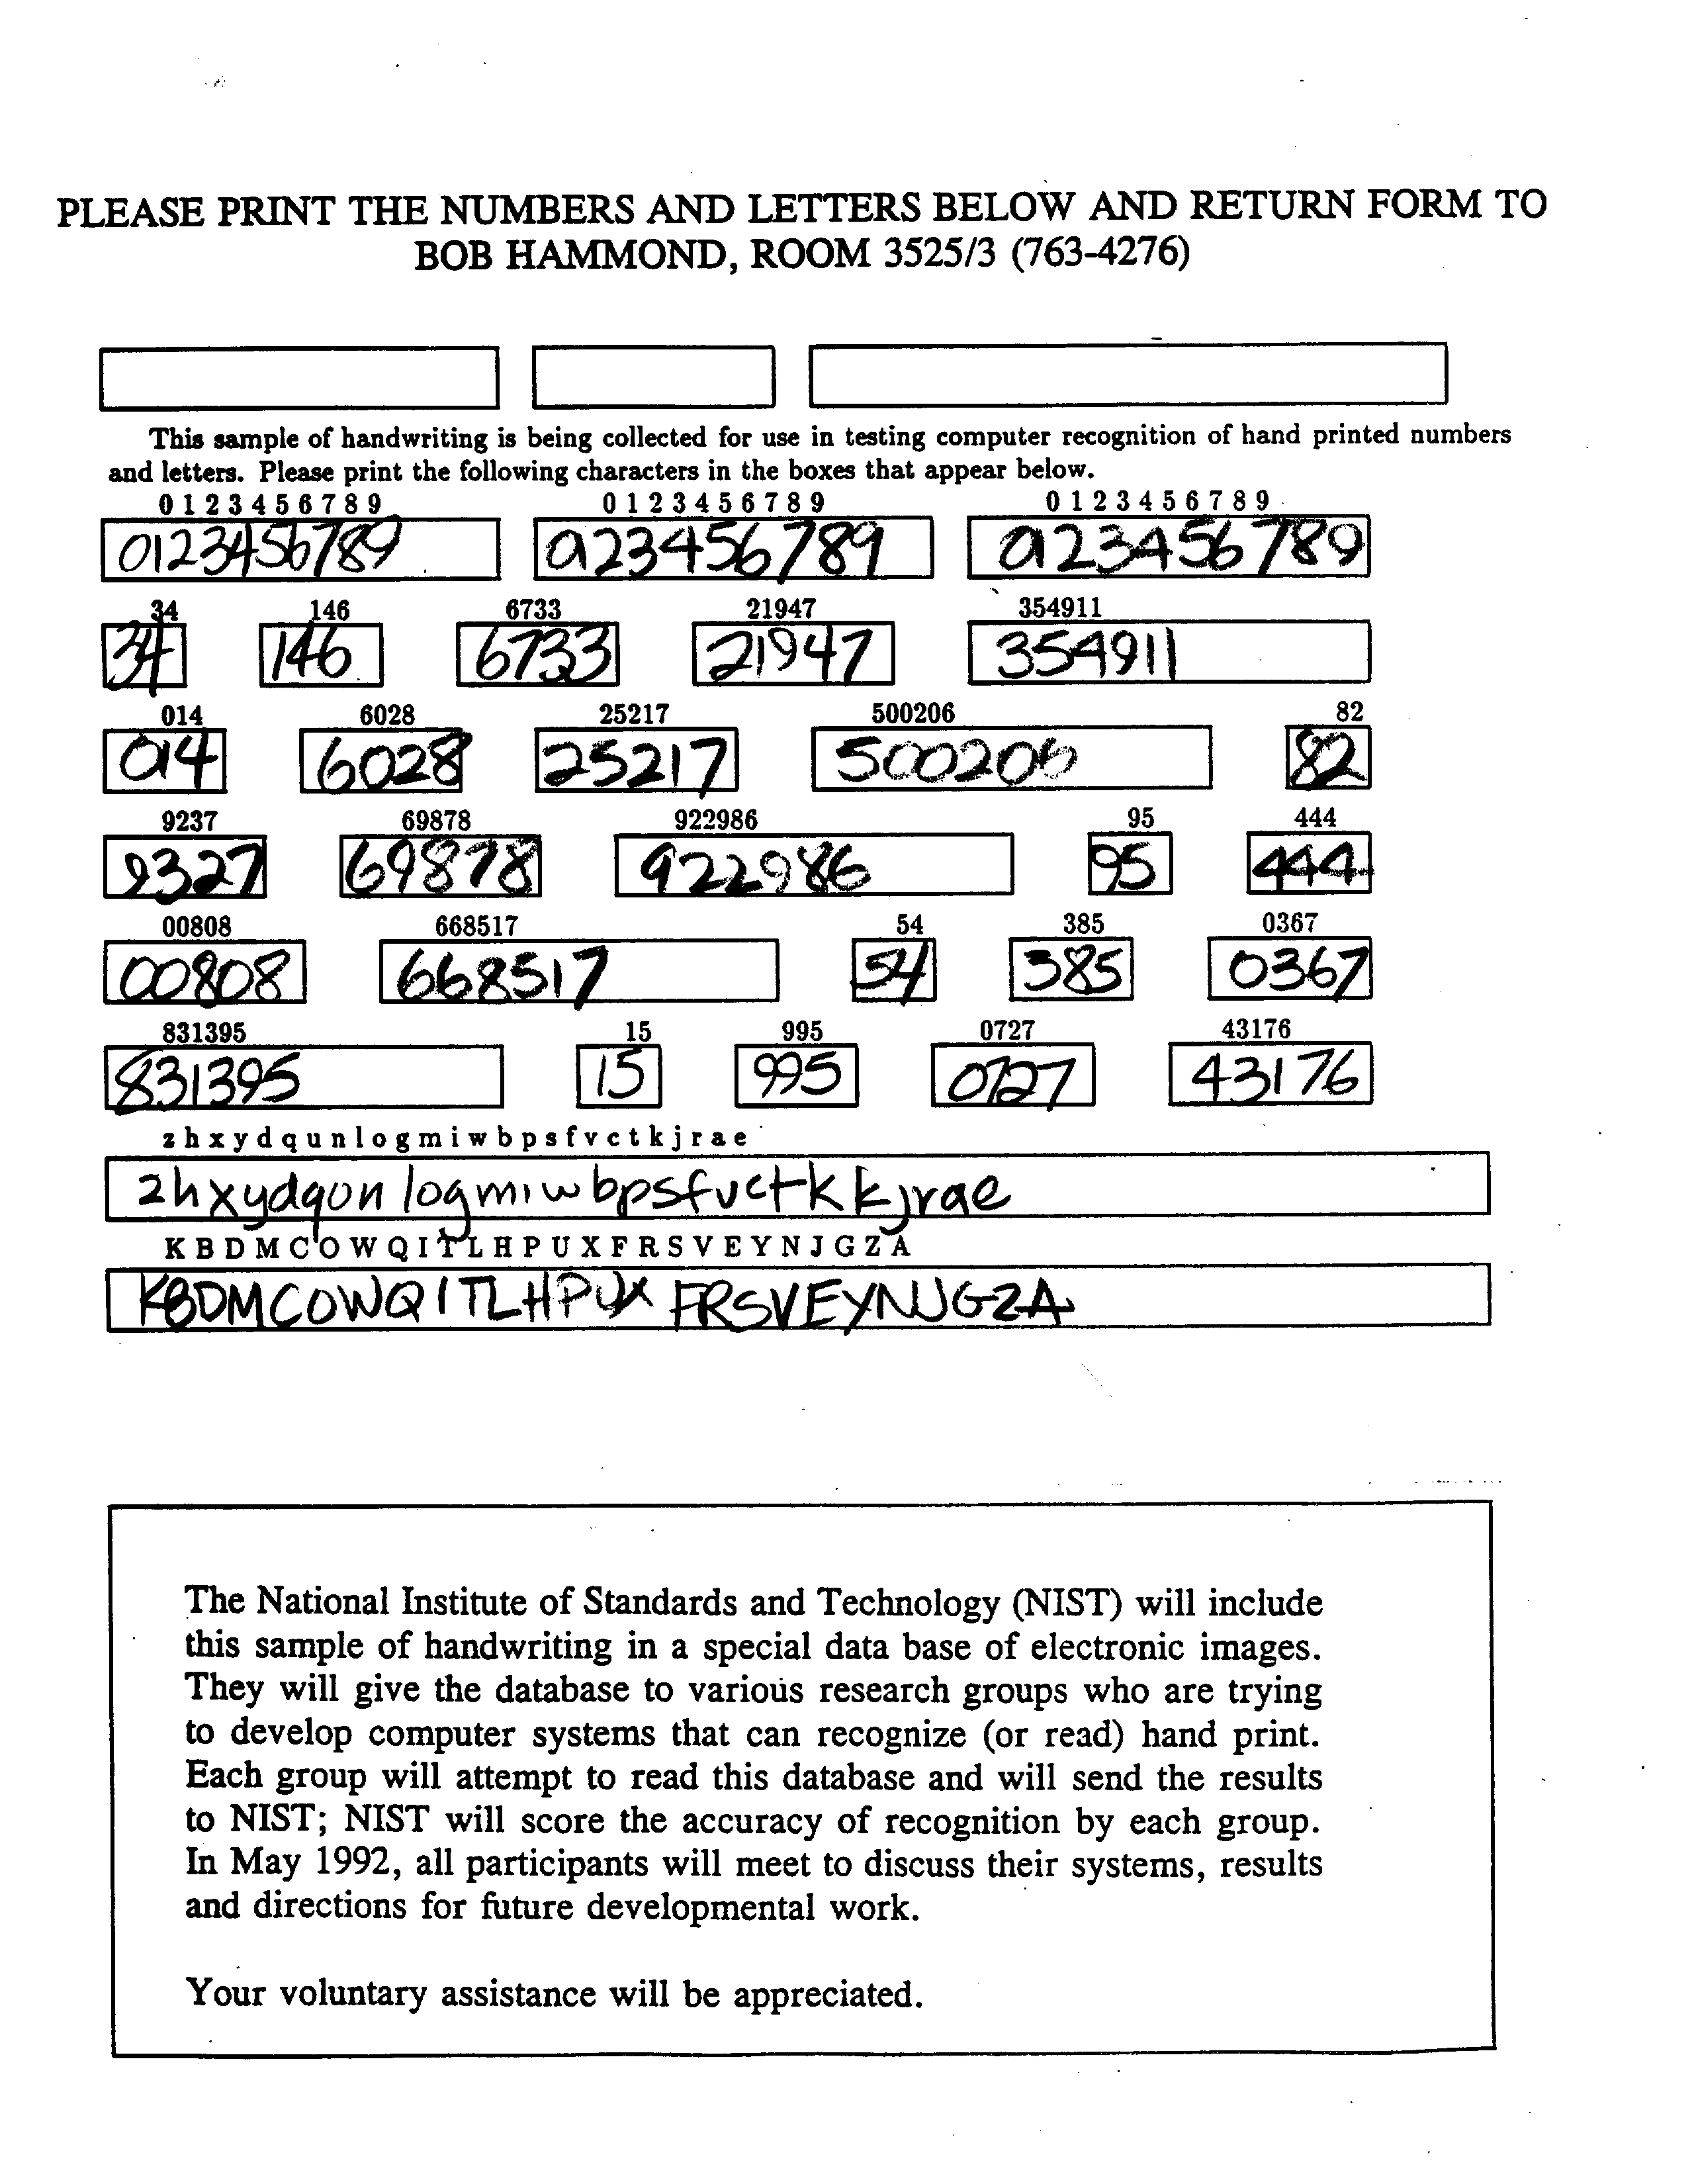 PLEASE PRINT THE NUMBERS AND LETTERS BELOW AND RETURN FORM TO
BOB HAMMOND, ROOM 3525/3 (763-4276)
This sample of handwriting is being collected for use in testing computer recognition of hand printed numbers
and letters. Please print the following characters in the boxes that appear below.
0 1 2 3 4 5 6 7 8 9 0 1 2 3 4 5 6 7 8 9 0 1 2 3 4 5 6 7 8 9
0123456789 0123456789 0123456789
34 146 6733 21947 354911
34 146 6733 21947 354911
014 6028 25217 500206 82
014 6028 25217 500206 82
9237 69878 922986 95 444
9327 69878 922986 95 444
00808 668517 54 385 0367
00808 668517 54 385 0367
831395 15 995 0727 43176
831395 15 995 0727 43176
z h x y d q u n l o g m i w b p s f v c t k j r a e
zhxydqunlogmiwbpsfvctkkjrae
K B D M C O W Q I T L H P U X F R S V E Y N J G Z A
KBDMCOWQITLHPUXFRSVEYNJGZA
The National Institute of Standards and Technology (NIST) will include
this sample of handwriting in a special data base of electronic images.
They will give the database to various research groups who are trying
to develop computer systems that can recognize (or read) hand print.
Each group will attempt to read this database and will send the results
to NIST; NIST will score the accuracy of recognition by each group.
In May 1992, all participants will meet to discuss their systems, results
and directions for future developmental work.
Your voluntary assistance will be appreciated.